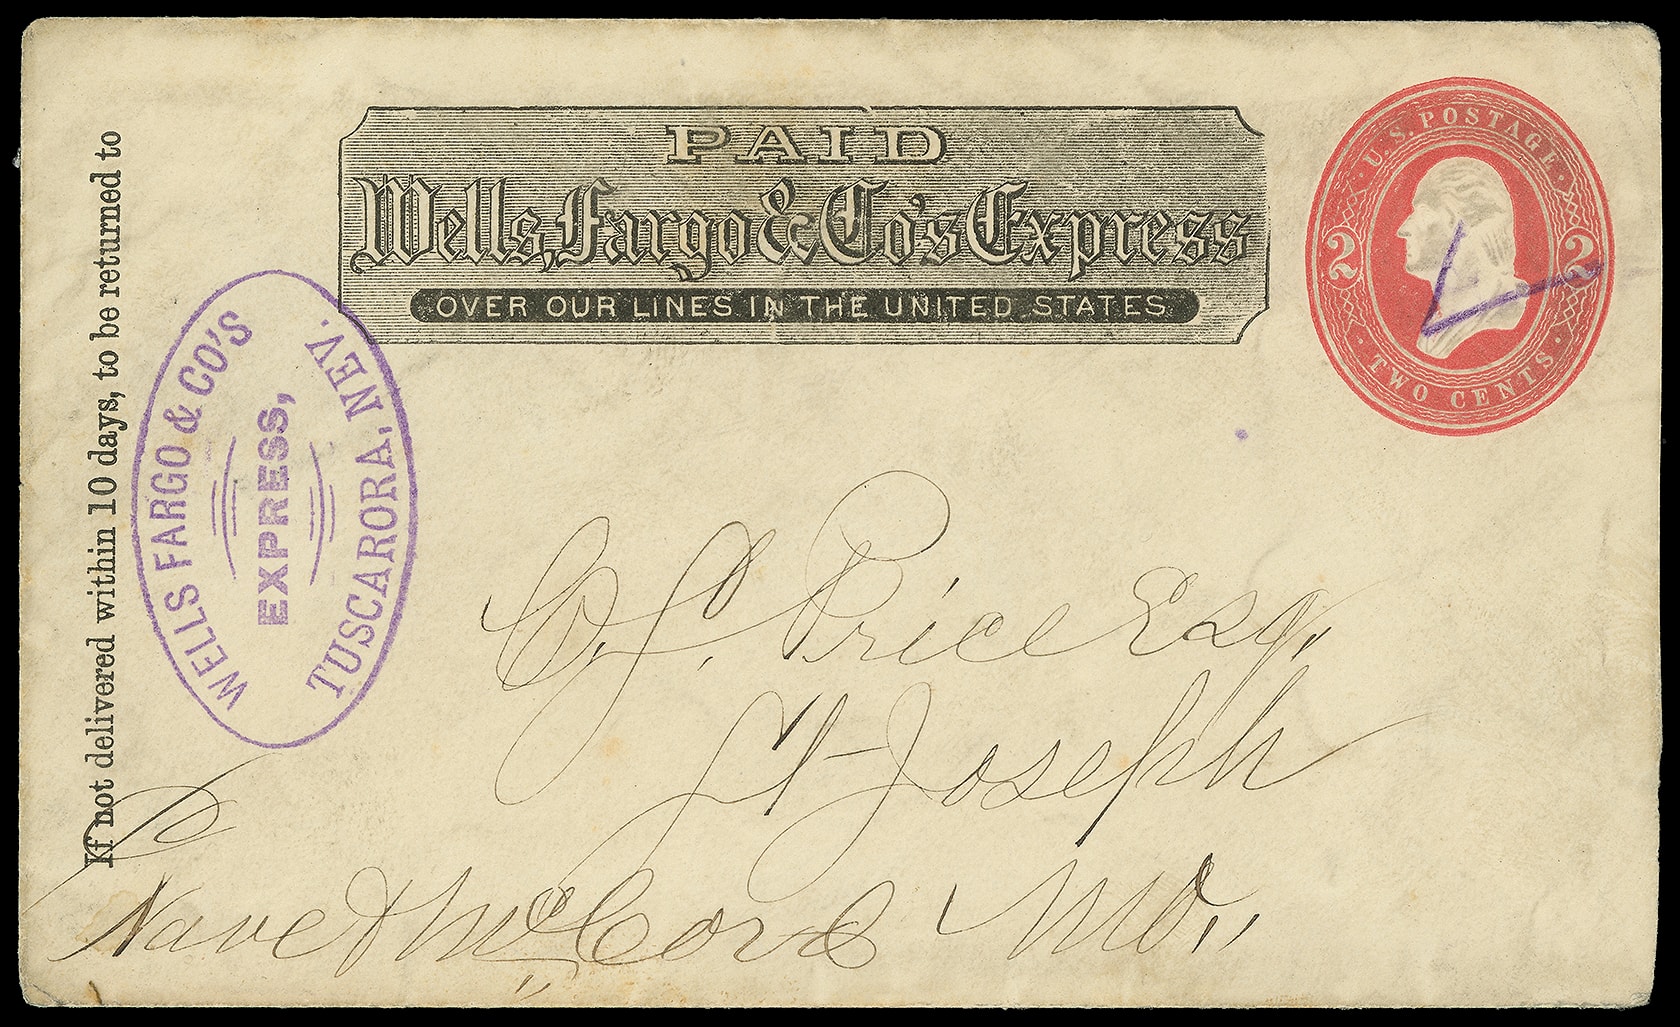 PAID
Wells, Fargo & Co's Express
OVER OUR LINES IN THE UNITED STATES
U.S. POSTAGE
2 2
TWO CENTS
If not delivered within 10 days, to be returned to
WELLS FARGO & CO'S
EXPRESS,
TUSCARORA, NEV.
Price Esq.
St Joseph
Mo.
Nave & McCord